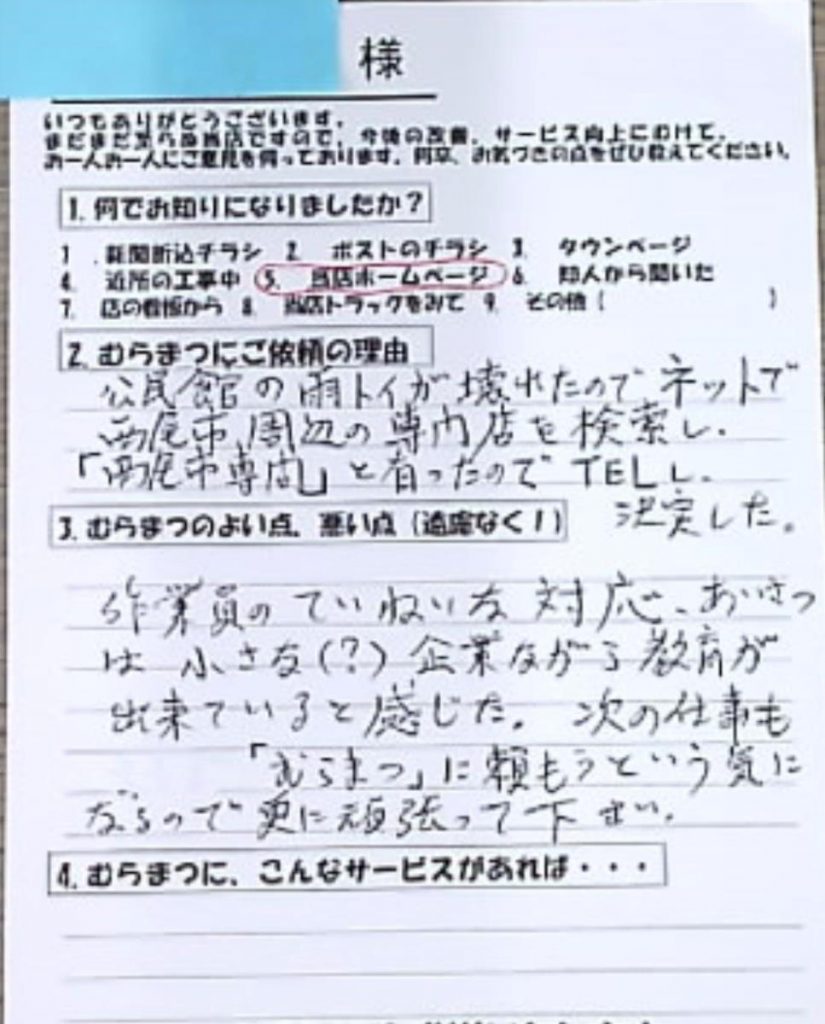 様
いつもありがとうございます。
まだまだ至らぬ当店ですので、今後の改善、サービス向上にむけて、
お一人お一人にご意見を伺っております。何卒、お気づきの点をぜひ教えてください。
1. 何でお知りになりましたか？
1. 新聞折込チラシ 2. ポストのチラシ 3. タウンページ
4. 近所の工事中 5. 当店ホームページ 6. 知人から聞いた
7. 店の看板から 8. 当店トラックをみて 9. その他（　　）
2. むらまつにご依頼の理由
公民館の雨トイが壊れたのでネットで
西尾市、周辺の専門店を検索し、
「西尾市専門」と有ったのでTELし、
決定した。
3. むらまつのよい点、悪い点（遠慮なく！）
作業員のていねいな対応、あいさつ
は小さな(？)企業ながら教育が
出来ていると感じた。次の仕事も
「むらまつ」に頼もうという気に
なるので更に頑張って下さい。
4. むらまつに、こんなサービスがあれば・・・